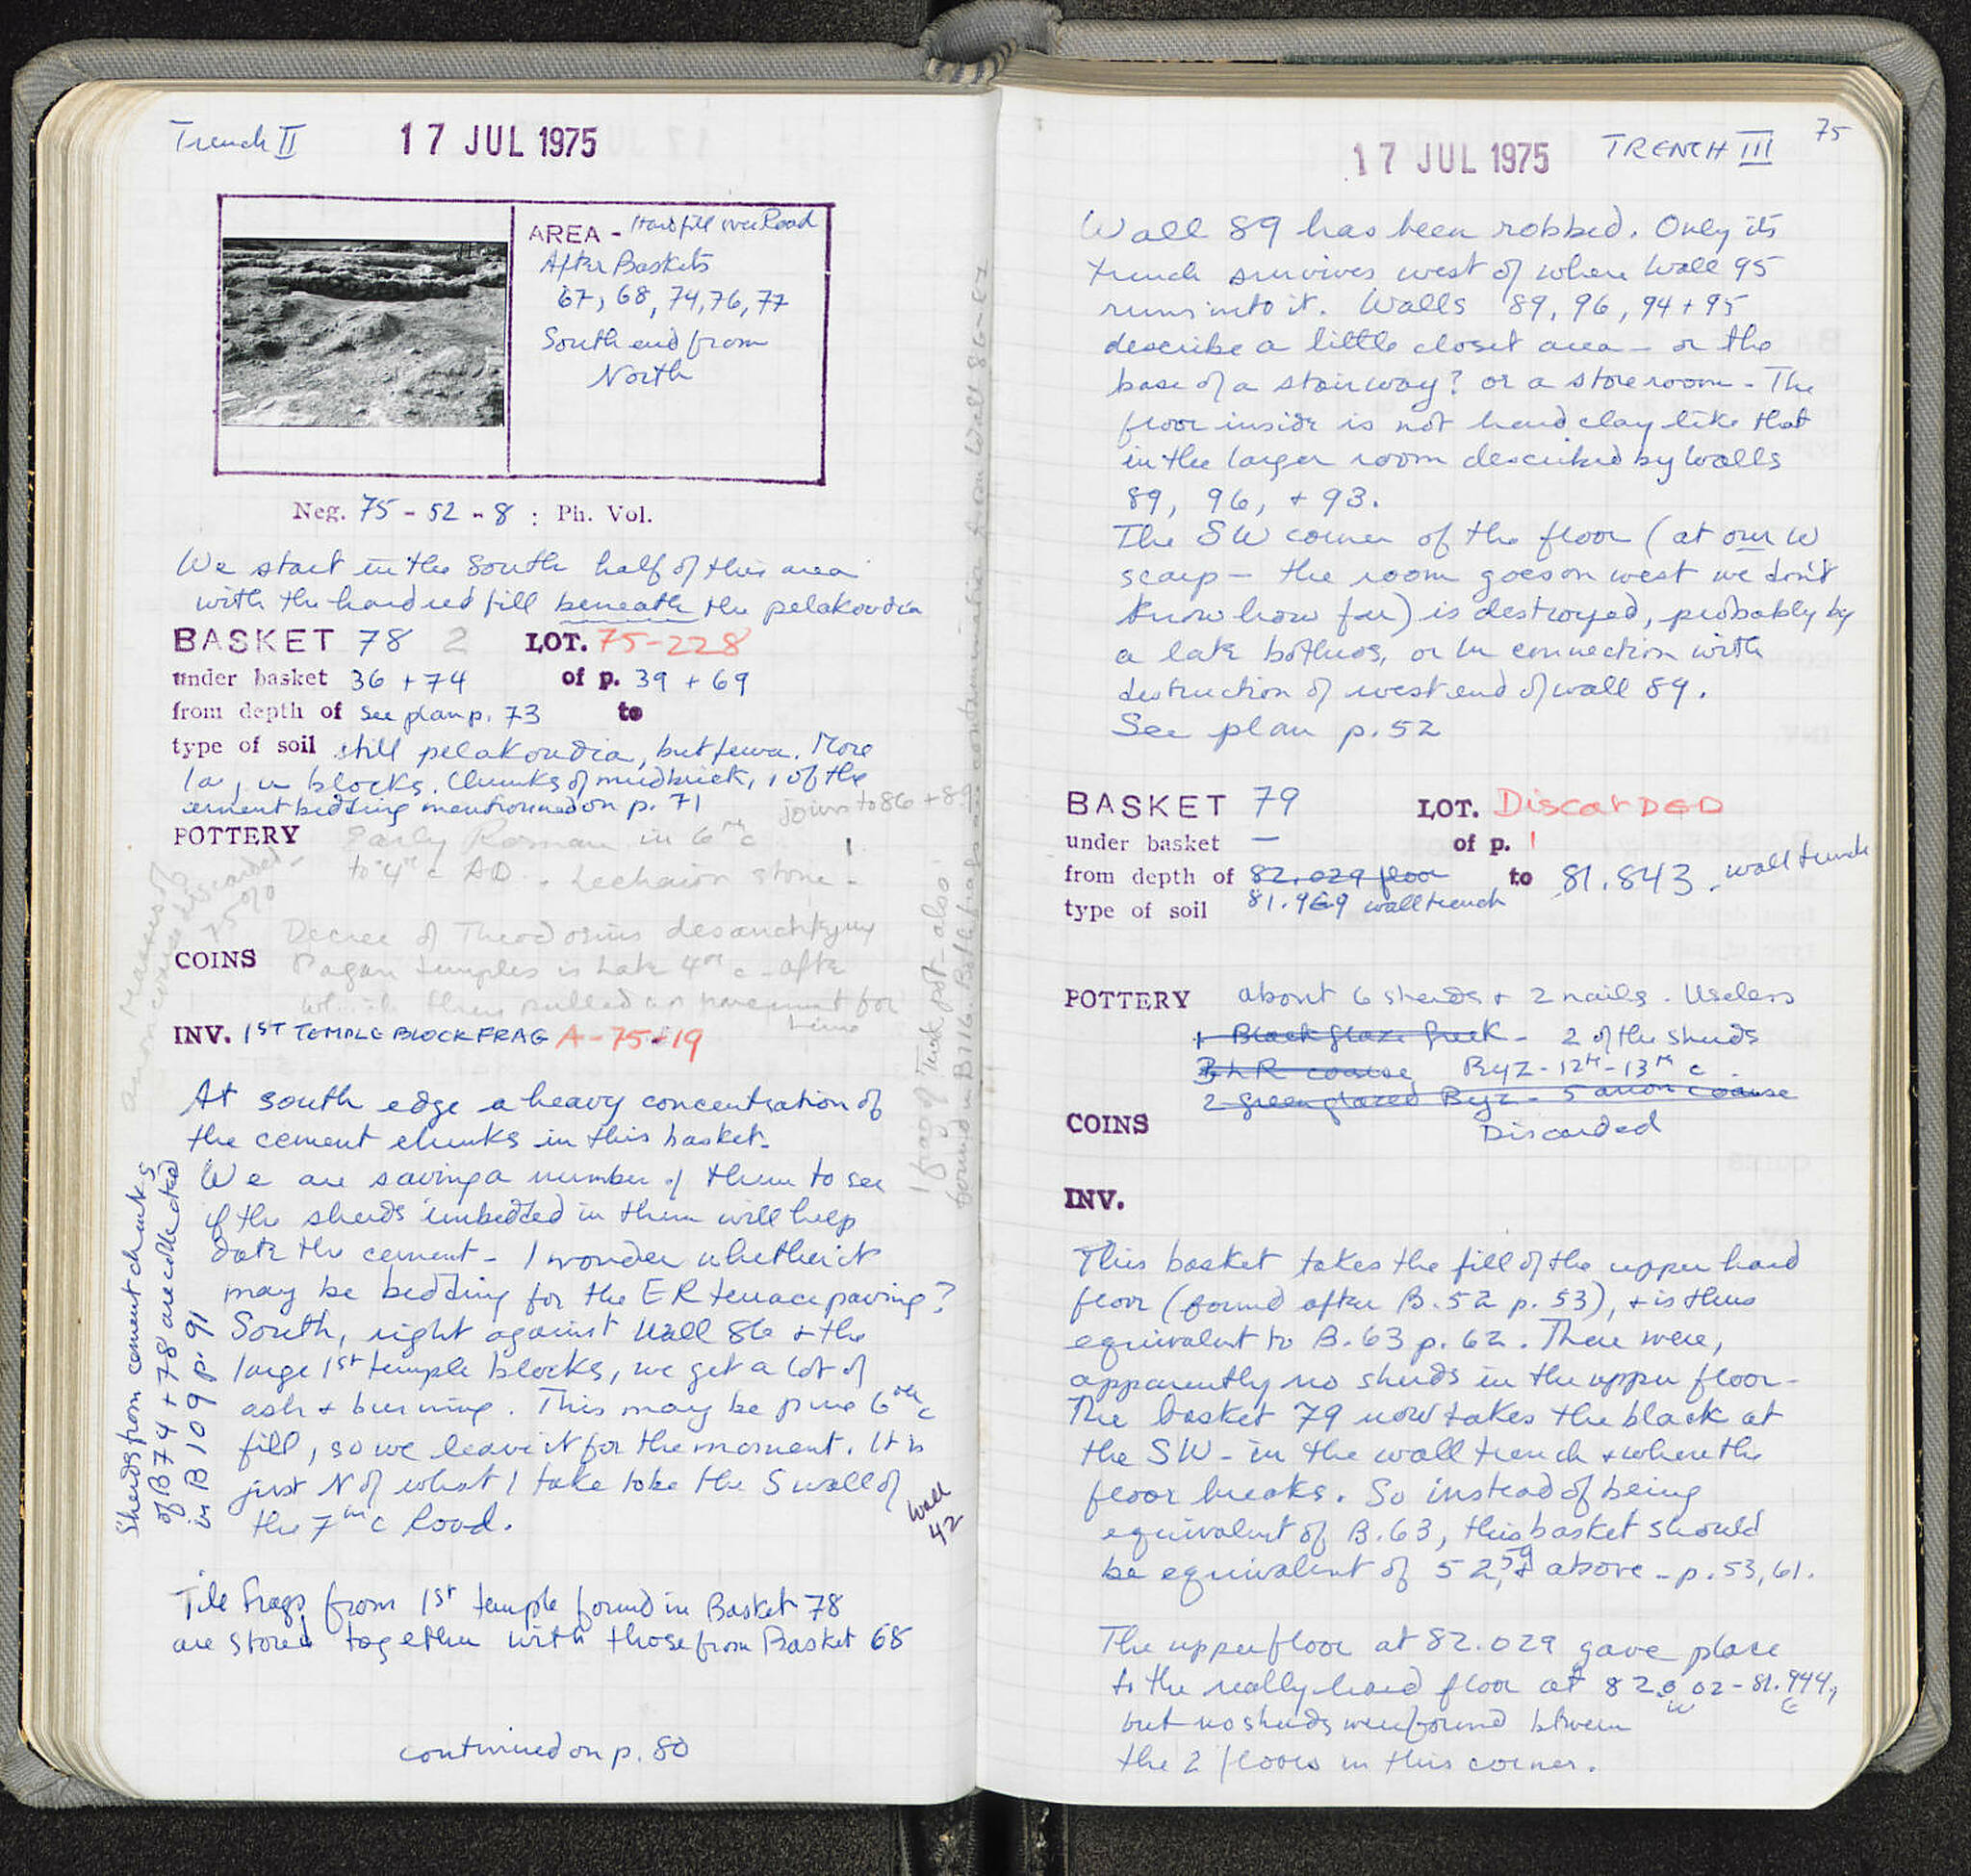 Trench II
17 JUL 1975
AREA - Hard fill over Road
After Baskets
67, 68, 74, 76, 77
South end from
North
Neg. 75 - 52 - 8 : Ph. Vol.
We start in the South half of this area
with the hard red fill beneath the pelakoudia
BASKET 78 2 LOT. 75-228
under basket 36 + 74 of p. 39 + 69
from depth of See plan p. 73 to
type of soil still pelakoudia, but fewer. More
blocks. Chunks of mudbrick, of the
cement bedding mentioned on p. 71
joins to 86 + 89
POTTERY Early Roman in 6th c
to 4th c AD. Lechaion stone -
Masses of
discarded -
75 010
Decree of Theodosius
COINS Pagan temples is late 4th c - after
which they pulled up pavement for
lime
INV. 1ST TEMPLE BLOCK FRAG A-75-19
At south edge a heavy concentration of
the cement chunks in this basket.
We are saving a number of them to see
if the sherds imbedded in them will help
date the cement - I wonder whether it
may be bedding for the ER terrace paving?
South, right against Wall 86 + the
large 1st temple blocks, we get a lot of
ash + burning. This may be pure 6th c
fill, so we leave it for the moment. It is
just N of what I take to be the S wall of
the 7th c Road.
Wall
42
Sherds from cement chunks
of B74 + 78 are collected
in B109 p. 91
1 frag of pot - also
found in B716.
Tile frags from 1st temple found in Basket 78
are stored together with those from Basket 68
continued on p. 80
17 JUL 1975 TRENCH III 75
Wall 89 has been robbed. Only its
trench survives west of where Wall 95
runs into it. Walls 89, 96, 94 + 95
describe a little closet area - or the
base of a stairway? or a storeroom - The
floor inside is not hard clay like that
in the larger room described by Walls
89, 96, + 93.
The SW corner of the floor (at our W
scarp - the room goes on west we don't
know how far) is destroyed, probably by
a late bothros, or in connection with
destruction of west end of wall 89.
See plan p. 52
BASKET 79 LOT. DISCARDED
under basket — of p. 1
from depth of 82.029 floor to 81.843 - wall trench
type of soil 81.969 wall trench
POTTERY about 6 sherds + 2 nails. Useless
1 Black glaze Greek - 2 of the sherds
3 LR coarse Byz - 12th - 13th c.
2 green glazed Byz - 5 anon coarse
COINS Discarded
INV.
This basket takes the fill of the upper hard
floor (found after B. 52 p. 53), + is thus
equivalent to B. 63 p. 62. There were,
apparently no sherds in the upper floor -
The basket 79 now takes the black at
the SW - in the wall trench + where the
floor breaks. So instead of being
equivalent of B. 63, this basket should
be equivalent of 52, 59 + above - p. 53, 61.
The upper floor at 82.029 gave place
to the really hard floor at 82.002 - 81.944,
W E
but no sherds were found between
the 2 floors in this corner.